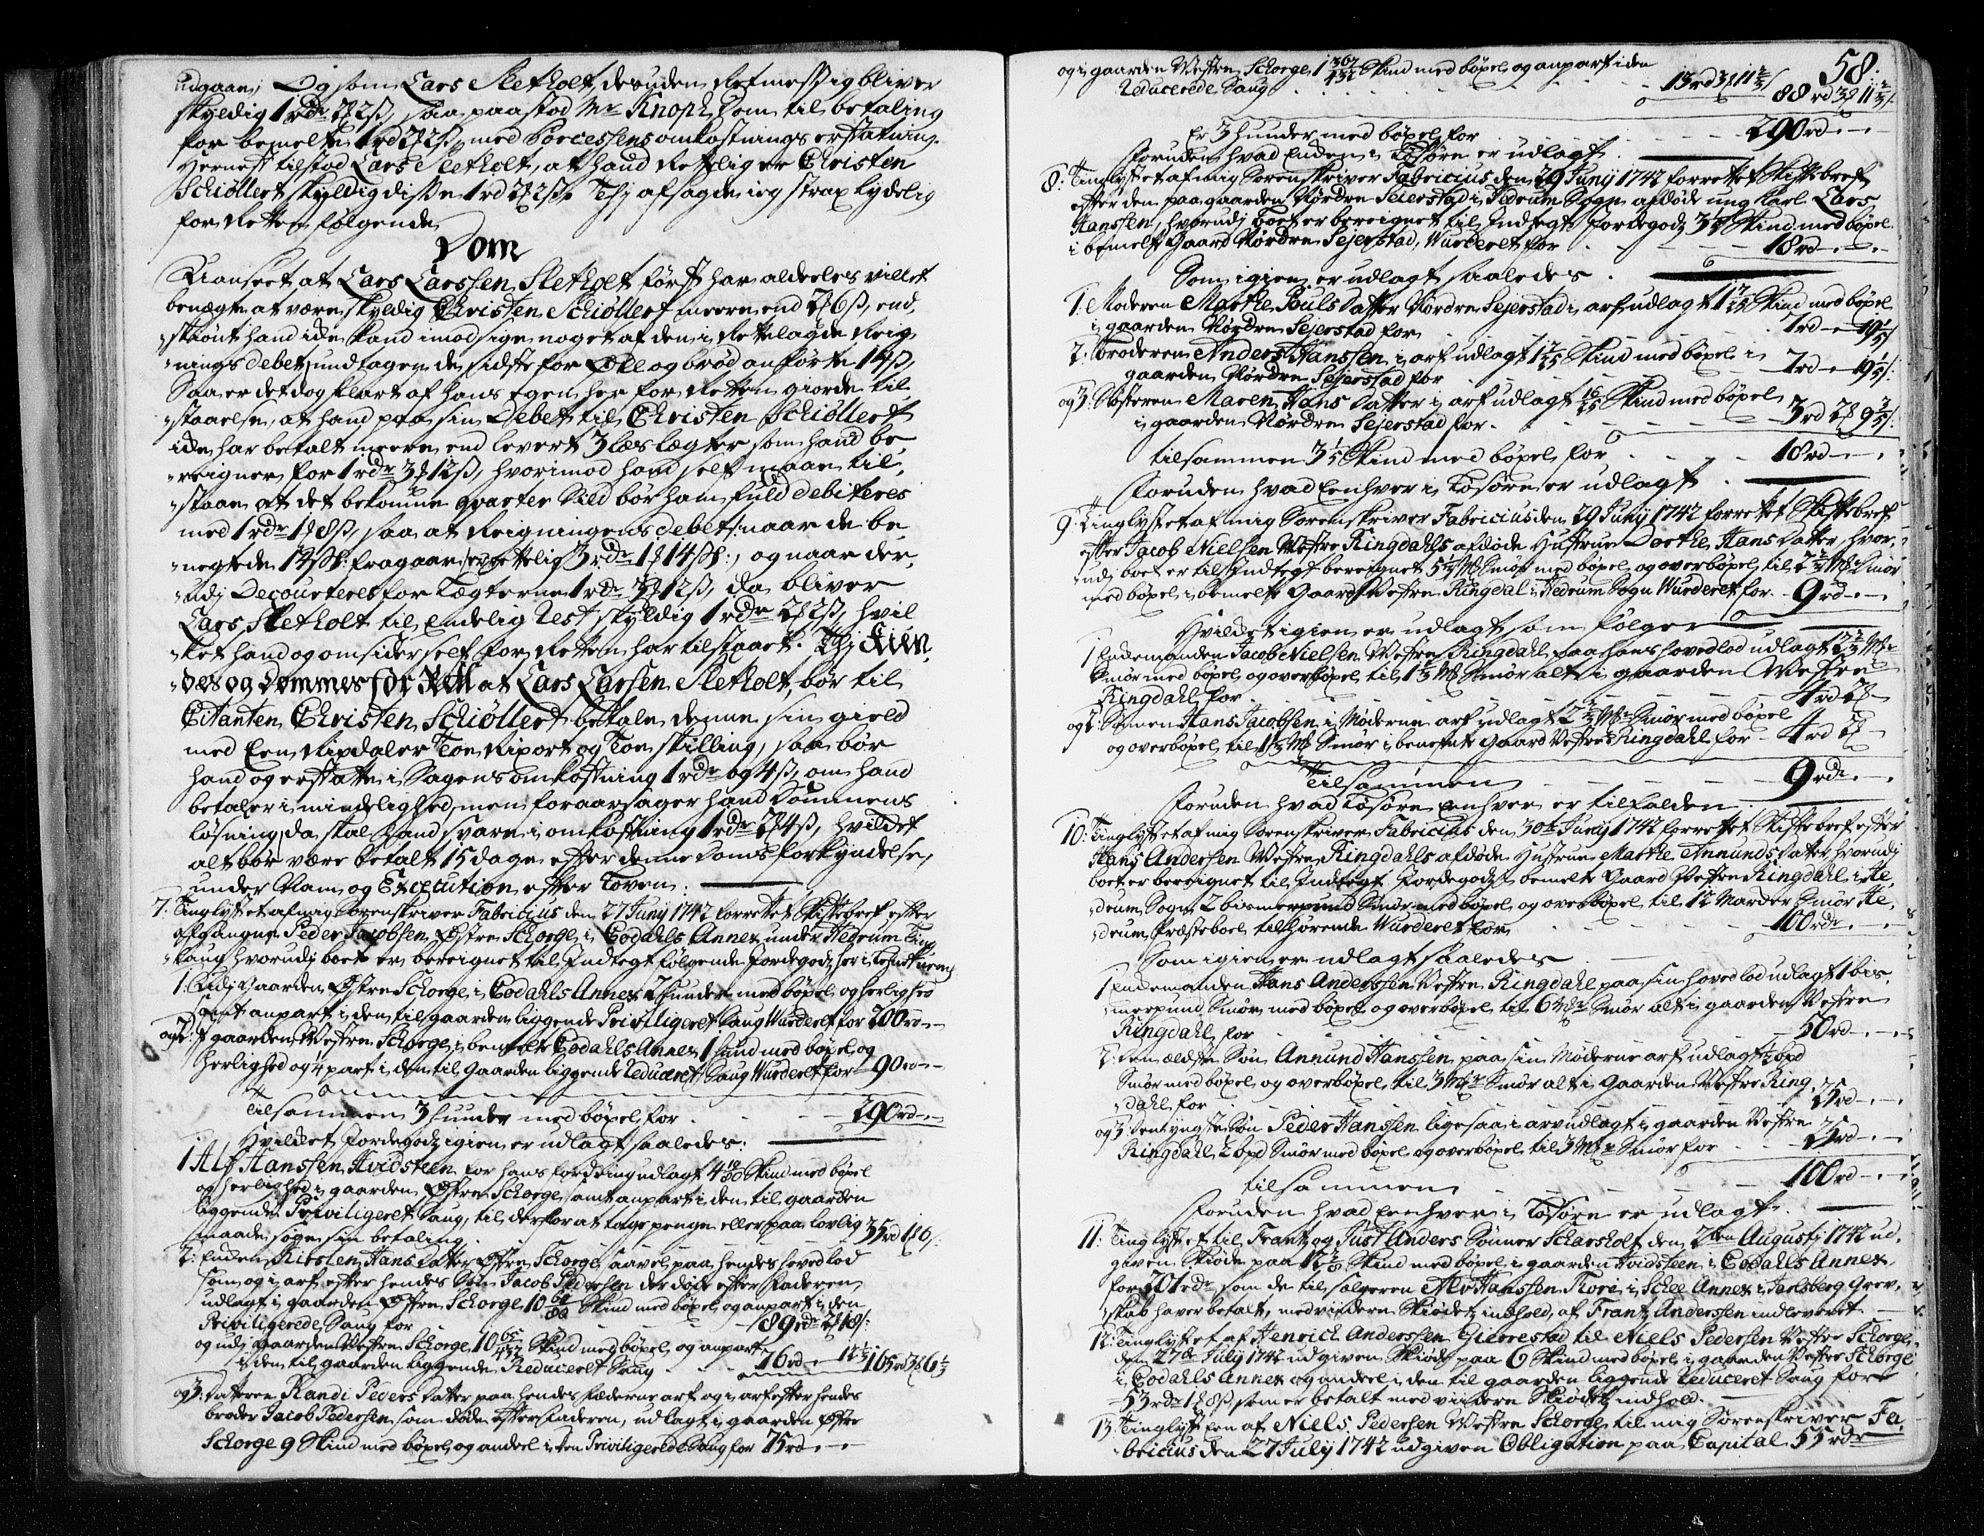 udgaar; Og som Lars Sletholt desuden Retmessig bliver
skyldig 1 rdr 2 ß, saa paastod Mr Knoph Dom til betaling
for bemelte 1 rd 2 ß med Porcessens omkostnings erstatning.
Hernest tilstod Lars Sletholt, at hand Rettelig er Christen
Schiøllert skyldig disse 1 rd 2 ß Thj afsagde ieg strax lydelig
for Retten følgende
Dom
Uanseet at Lars Larssen Sletholt først har aldeeles villet
benægte at være skyldig Christen Schiøllert meere end 6 ß, end,
skiønt hand icke kand imodsige noget af den i Rette lagde Reig
nings debet, undtagen de sidste for Øll og brød anførte 14 ß,
Saa er det dog klart af hans egen her for Retten giorde til
staaelse, at hand paa sin Debet til Christen Schiøllert
icke har betalt meere end levert 3 læs lægter som hand be
reigner for 1 rdr 3 12 ß, hvorimod hand self maae til,
staae at det bekomne qvarter Sild bør ham fuld debiteres
med 1 rdr 1 8 ß, saa at Reigningens debet naar de be,
negtede 14 ß fragaar, Rettelig 3 rdr 1 14 ß, og naar der,
udj Decourteres for Lægterne 1 rdr 3 12 ß, da bliver
Lars Sletholt til Endelig Rest skyldig 1 rdr 2 2 ß, hvil
ket hand og omsider self for Retten har tilstaaet. Thj Kien,
des og Dømmes for Ret at Lars Larsen Sletholt bør til
Citanten Christen Schiøllert betale denne sin gield
med Een Rixdaler Toe Rixort og Toe skilling, saa bør
hand og erstatte i Sagens omkostning 1 rdr og 4 ß, om hand
betaler i mindelighed, men foraarsager hand Dommens
løsning, da skal hand svare i omkostning 1 rdr 2 4 ß, hvilket
alt bør være betalt 15 dage efter denne Doms forkyndelse,
under Nam og Execution efter Loven.
7. Tinglyst et af mig Sorenskriver Fabricius den 27 Juny 1742 forrettet Skiftebref efter
afgangne Peder Jacobsen Østre Schorge i Qvodahls Annex under Hedrum Ting
laug hvorudj boet er bereignet til Indtegt følgende Jordegods her i
1. Udj Gaarden Østre Schorge i Codahls Annex 2 Hunder med bøxel og herlighed
samt anpart i den til gaarden liggende Priviligeret Saug Wurderet for 200 rd
og 2. J gaarden Vestre Schorge i bemelte Codahls Annex 1 hund med bøxel og
herlighed og 1/4 part i den til Gaarden liggende Reduceret Saug Wurderet for 90 rd
Tilsammen 3 hunder med bøxel for 290 rd
Hvilket Jordegods igien er udlagt saaledes:
1 Alf Hanssen Hvidsteen for hans fordring udlagt 4 Skind med bøxel
og herlighed i gaarden Østre Schorge, samt anpart i den til gaarden
liggende Priviligeret Saug, til derfor at tage penge eller paa lovlig 35 rd 1 6
maade søge sin betaling
2. Enken Kirsten Hans Datter Østre Schorge, saavel paa hendes hoved lod
som og i arf efter hendes Søn Jacob Pedersen der døde efter Faderen
udlagt i gaarden Østre Schorge 10 Skind med bøxel og anpart i den
Priviligerede Saug for 89 rdr 2 18
og udj gaarden Vestre Schorge 10 Skind med bøxel og anpart
i den til gaarden liggende Reduceret Saug 76 rd 165 rd 3 6 1/2
og 3. Datteren Randi Peders Datter paa hendes Fæderne arf og i arf efter hendes
broder Jacob Pedersen, som døde efter Faderen, udlagt i gaarden Østre
Schorge 9 Skind med bøxel og andeel i den Priviligerede Saug for 75 rd
58.
og i gaarden Vestre Schorge 1 Skind med bøxel og anpart i den
Reducerede Saug 13 rd 3 11 2/5 88 rd 3 11 2/5
Er 3 hunder med bøxel for 290 rd
Foruden hvad Enken i Løsøre er udlagt
8. Tinglyst et af mig Sorenskriver Fabricius den 29 Juny 1742 forrettet Skiftebref
efter den paa gaarden Nørdre Seierstad i Hedrum Sogn afdøde ung karl Lars
Hanssen, hvorudj boet er bereignet til Indtegt Jordegods 3 Skind med bøxel
i bemelte Gaard Nørdre Sejerstad, Wurderet for 18 rd
Som igien er udlagt saaledes
1. Moderen Marthe Pouls Datter Nordre Sejerstad i arf udlagt 1 Skind med bøxel
i gaarden Nørdre Sejerstad for 7 rd 19 1/5
2. Broderen Anders Hanssen i arf udlagt 1 Skind med bøxel i
gaarden Nørdre Sejerstad for 7 rd 19 1/5
og 3. Søsteren Maren Hans Datter i arf udlagt Skind med bøxel
i gaarden Nørdre Sejerstad for 3 rd 2 9 3/5
tilsammen 3 Skind med bøxel for 18 rd
Foruden hvad Eenhver i Løsøre er udlagt
9. Tinglyst et af mig Sorenskriver Fabricius den 29 Juny 1742 forrettet Skiftebref
efter Jacob Nielsen Vestre Ringdahls afdøde Hustrue Dorthe Hans Datter, hvor,
udj boet er til Indtegt bereignet 5 Smør med bøxel og overbøxel til Smør
med bøxel i bemelte Gaard Vestre Ringdal i Hedrum Sogn Wurderet for 9 rd
Hvilket igien er udlagt som følger
1 Enkemanden Jacob Nielsen Vestre Ringdahl paa hans hovedlod udlagt
Smør med bøxel og overbøxel til 1 Smør alt i gaarden Vestre
Ringdahl for 4 rd 2
og 2. Sønnen Hans Jacobsen i Møderne arf udlagt Smør med bøxel
og overbøxel til Smør i benefnte Gaard Vestre Ringdahl for 4 rd 2
Tilsammen 9 rdr
Foruden hvad Løsøre Eenhver er tilfalden
10. Tinglyst et af mig Sorenskriver Fabricius den 30te Juny 1742 forrettet Skiftebref efter
Hans Andersen Vestre Ringdahls afdøde Hustrue Marthe Annunds Datter, hvorudj
boet er bereignet til Indtegt Jordegods bemelte Gaard Vestre Ringdahl i He,
drum Sogn 2 bismerpund Smør med bøxel og overbøxel til 12 Marker Smør He,
drum Præsteboel tilhørende Wurderet for 100 rdr
Som igien er udlagt saaledes
1 Enkemanden Hans Anderssen Vestre Ringdahl paa sin hoved lod udlagt 1 bis,
merpund Smør med bøxel og overbøxel til 6 Smør alt i gaarden Vestre
Ringdahl for 50 rd
2. den ældste Søn Annund Hanssen paa sin Møderne arf udlagt 1/2 bpd
Smør med bøxel og overbøxel til 3 Smør alt i Gaarden Vestre Ring
dahl for 25 rd
og 3 den yngste Søn Peder Hanssen ligesaa i arv udlagt i gaarden Vestre
Ringdahl 1/2 bpd Smør med bøxel og overbøxel til 3 Smør for 25 rd
tilsammen 100 rd
Foruden hvad Eenhver i Løsøre er udlagt
11. Tinglyst et til Frantz og Just Anders Sønner Scharsholt den 2den Augusty 1742 ud,
given Skiøde paa 12 Skind med bøxel i gaarden Hvidsteen i Codahls Annex,
for 201 rdr som de til sælgeren Alv Hanssen Flore i Schee Annex i Jarlsberg Grev,
skab haver betalt, med videre Skiødets indhold, af Frantz Anderssen indleveret
12. Tinglyst et af Henrich Anderssen Gierrestad til Niels Pedersen Vestre Schorge
den 27de July 1742 udgiven Skiøde paa 6 Skind med bøxel i gaarden Vestre Schorge
i Codahls Annex og andeel i den til gaarden liggende Reduceret Saug for
53 rdr 1 8 ß, som er betalt med viidere Skiødets indhold.
13. Tinglyst een af Niels Pedersen Vestre Schorge til mig Sorenskriver Fa,
bricius den 27 July 1742 udgiven Obligation paa Capital 55 rdr